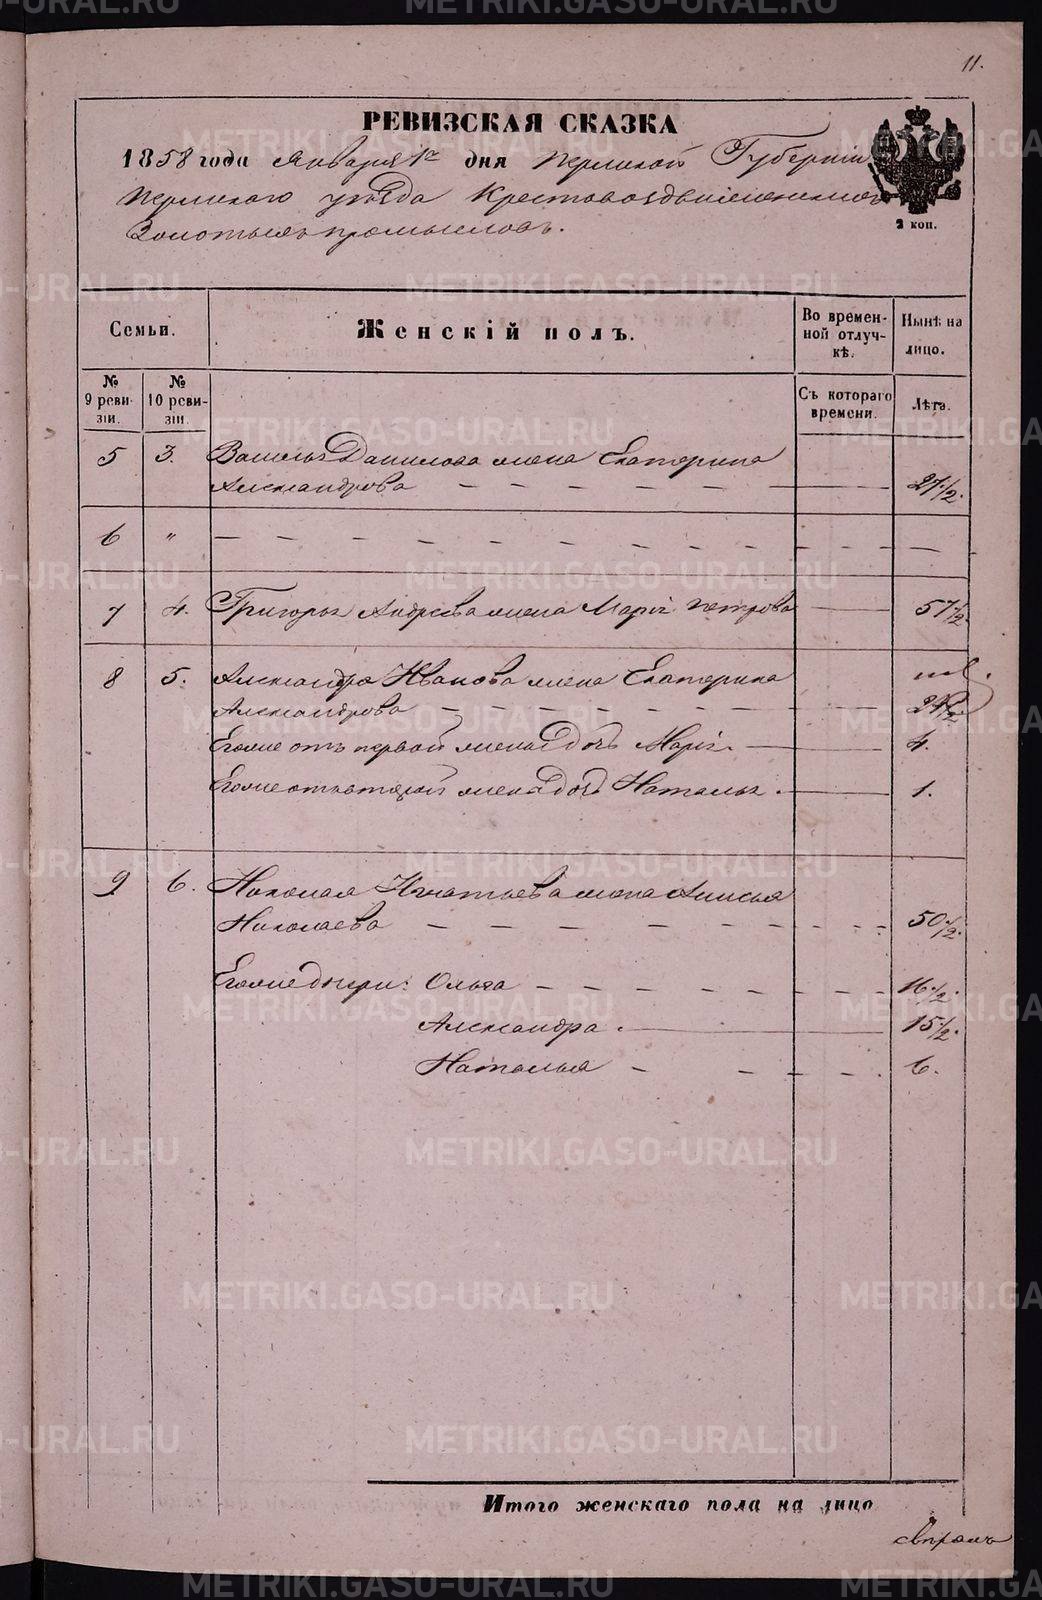 11.
РЕВИЗСКАЯ СКАЗКА
1858 года Января 1го дня Пермской Губерніи
Пермскаго уѣзда Крестовоздвиженскихъ
Золотыхъ промысловъ.
2 коп.
Семьи.
Женскій полъ.
Во времен-
ной отлуч-
кѣ.
Нынѣ на
лицо.
№
9 реви-
зіи.
№
10 реви-
зіи.
Съ котораго
времени.
Лѣта.
5 3. Василья Данилова жена Екатерина
Александрова — — — — — — 21 1/2.
6 " — — — — — — — — — — —
7 4. Григорья Андреева жена Марія Петрова — 57 1/2
8 5. Александра Иванова жена Екатерина
Александрова — — — — — —
Егоже отъ первой жены дочь Марія — 4.
Егоже отъ второй жены дочь Наталья. — 1.
9 6. Николая Игнатьева жена Анисья
Николаева — — — — — — 50 1/2.
Егоже дочери: Ольга — — — — — 16 1/2.
Александра. — 15 1/2.
Наталья — — — — 6.
Итого женскаго пола на лицо
METRIKI.GASO-URAL.RU